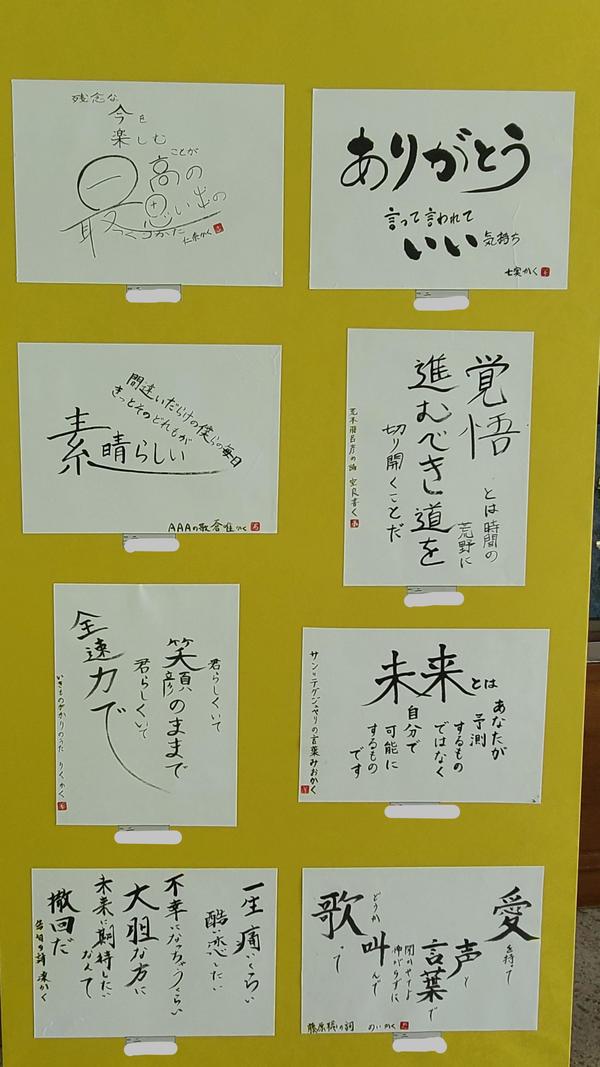 残念な
今を
楽しむ
ことが
最高の
思い出の
つくりかた
ありがとう
言って言われて
いい気持ち
七実かく
間違いだらけの僕らの毎日
きっとそのどれもが
素晴らしい
AAAの歌
覚悟
とは時間の
荒野に
進むべき道を
切り開くことだ
荒木飛呂彦の論 空良書く
君らしくいて
笑顔のままで
君らしくいて
全速力で
いきものがかりのうた りくかく
未来とは
あなたが
予測
するもの
ではなく
自分で
可能に
するもの
です
サン=テグジュペリの言葉みおかく
一生痛いくらい
酷い恋したい
不幸になっちゃうくらい
大胆な方に
未来に期待したい
なんて
撤回だ
愛を持って
声と
言葉で
叫んで
どうか
歌って
藤原聡の詞 めいかく